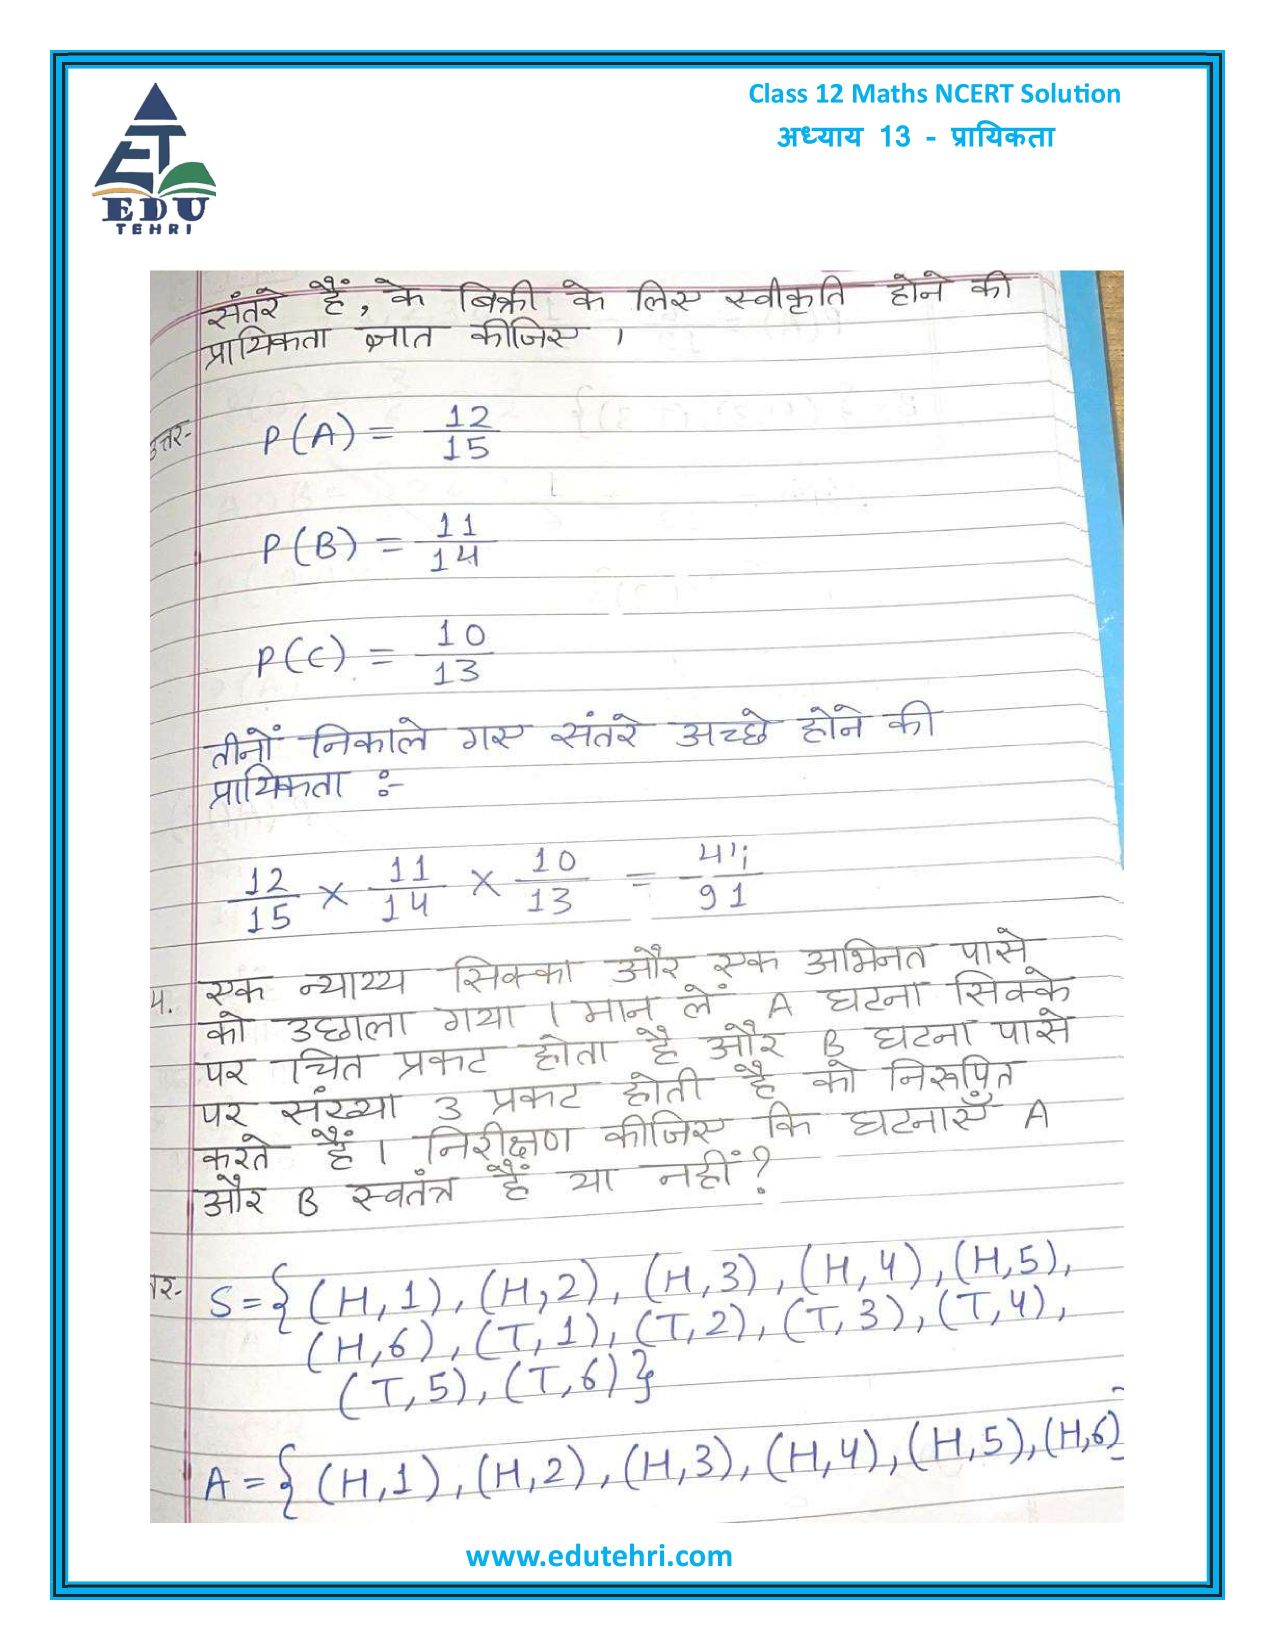 Class 12 Maths NCERT Solution
अध्याय 13 - प्रायिकता
EDU
TEHRI
संतरे हैं, के बिक्री के लिए स्वीकृति होने की
प्रायिकता ज्ञात कीजिए ।
उत्तर- P(A) = 12/15
P(B) = 11/14
P(C) = 10/13
तीनों निकाले गए संतरे अच्छे होने की
प्रायिकता :-
12/15 × 11/14 × 10/13 = /91
4. एक न्याय्य सिक्का और एक अभिनत पासे
को उछाला गया । मान लें A घटना सिक्के
पर चित प्रकट होता है और B घटना पासे
पर संख्या 3 प्रकट होती है को निरूपित
करते हैं । निरीक्षण कीजिए कि घटनाएँ A
और B स्वतंत्र हैं या नहीं?
तर- S = {(H,1), (H,2), (H,3), (H,4), (H,5),
(H,6), (T,1), (T,2), (T,3), (T,4),
(T,5), (T,6)}
A = {(H,1), (H,2), (H,3), (H,4), (H,5), (H,6)
www.edutehri.com